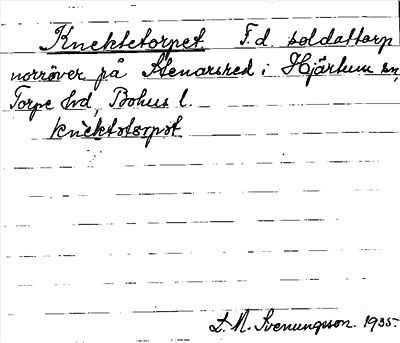 Knektetorpet. F.d. soldattorp
norröver på Stenarsred i Hjärtum sn,
Torpe hd, Bohus l.
knektotorpot
L. M. Svenungsson. 1935.